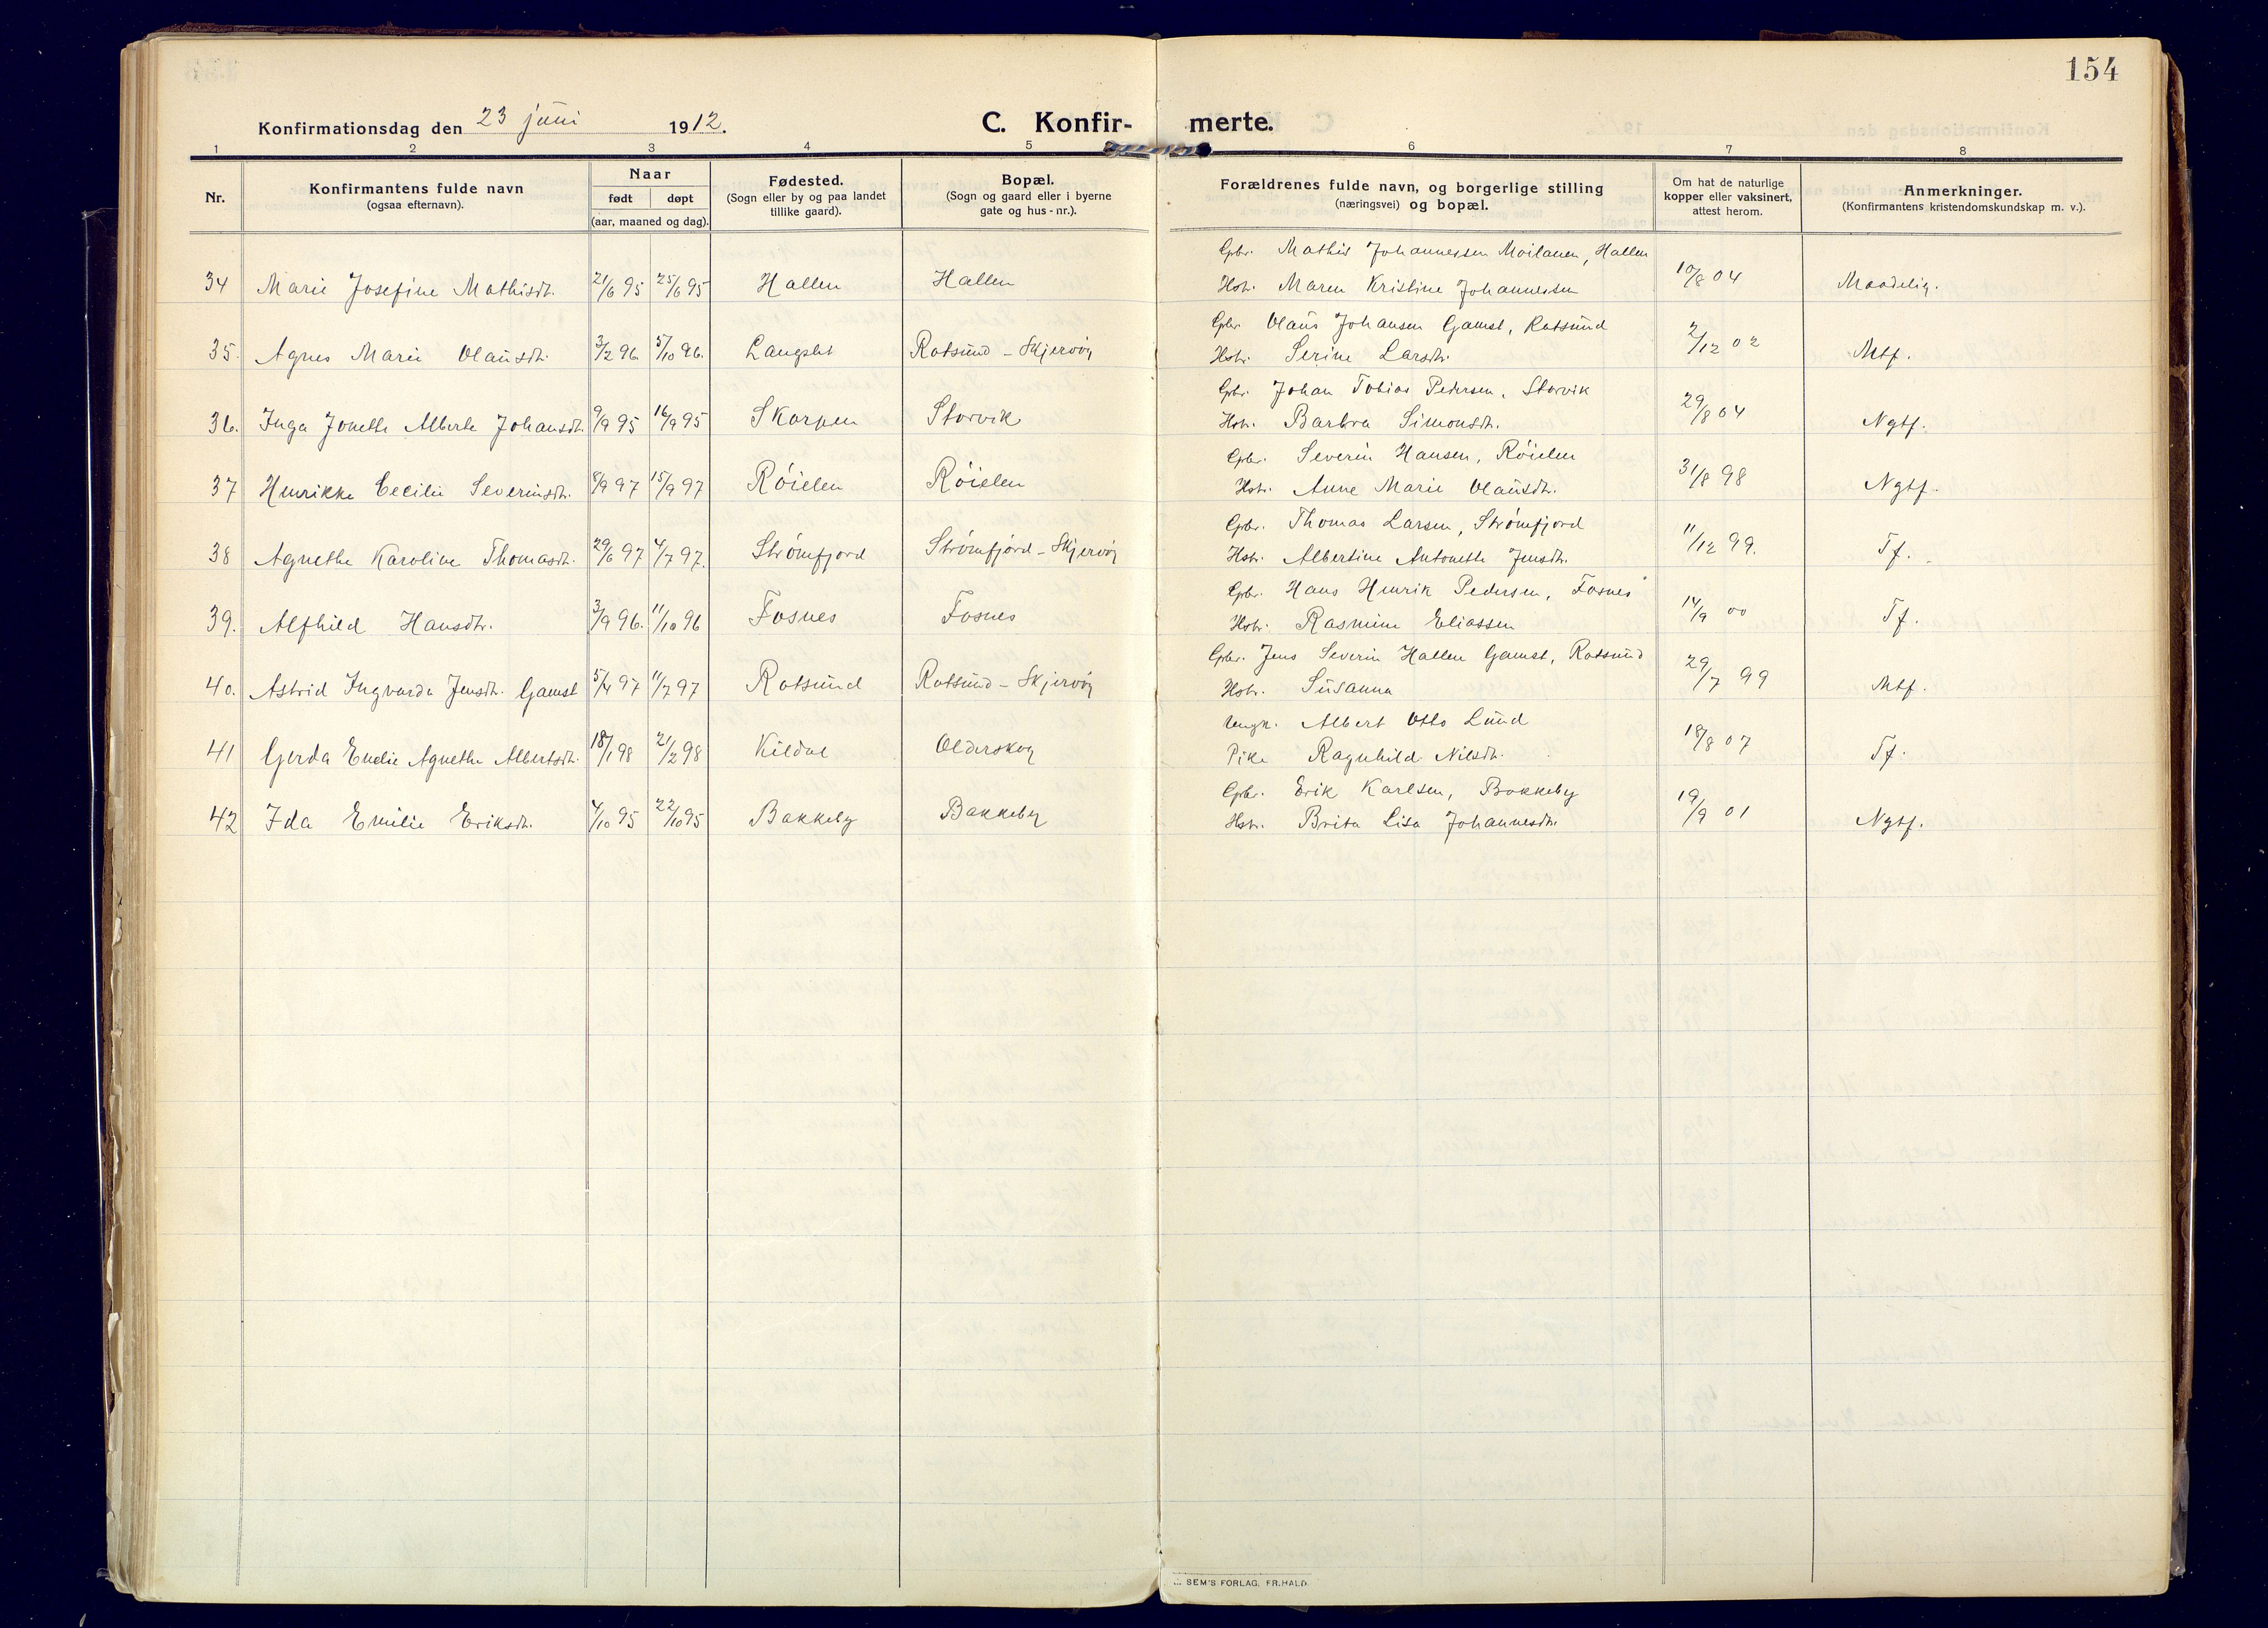 154
Konfirmationsdag den 23 juni 1912.
C. Konfir- merte.
1 2 3 4 5 6 7 8
Nr.
Konfirmantens fulde navn
(ogsaa efternavn).
Naar
født døpt
(aar, maaned og dag).
Fødested.
(Sogn eller by og paa landet
tillike gaard).
Bopæl.
(Sogn og gaard eller i byerne
gate og hus-nr.).
Forældrenes fulde navn, og borgerlige stilling
(næringsvei) og bopæl.
Om hat de naturlige
kopper eller vaksinert,
attest herom.
Anmerkninger.
(Konfirmantens kristendomskundskap m. v.).
Gbr. Mathis Johannessen Moilanen, Hallen
34 Marie Josefine Mathisdt. 21/6 95 25/6 95 Hallen Hallen Hstr. Maren Kristine Johannessen 10/8 04 Maadelig.
Gbr. Olaus Johansen Gamst, Rotsund
35. Agnes Marie Olausdt. 3/2 96. 5/10 96. Langslet Rotsund - Skjervøy Hstr. Serine Larsdtr. 2/12 02 Mtf.
Gbr. Johan Tobias Pedersen, Storvik
36. Inga Jonette Alberte Johansdt. 9/9 95 16/9 95 Skarpen Storvik Hstr. Barbra Simonsdt. 29/8 04 Ngtf.
Gbr. Severin Hansen, Røielen
37 Henrikke Cecilie Severinsdt. 8/9 97 15/9 97 Røielen Røielen Hstr. Anne Marie Olausdtr. 31/8 98 Ngtf.
Gbr. Thomas Larsen, Strømfjord
38 Agnethe Karoline Thomasdt. 29/6 97 4/7 97. Strømfjord Strømfjord - Skjervøy Hstr. Albertine Antonette Jensdt. 11/12 99. Tf.
Gbr. Hans Henrik Pedersen, Fosnes
39. Alfhild Hansdtr. 3/9 96. 11/10 96 Fosnes Fosnes Hstr. Rasmine Eliassen 14/9 00 Tf.
Gbr. Jens Severin Hallen Gamst, Rotsund
40. Astrid Ingvarda Jensdt. Gamst 5/4 97 11/7 97 Rotsund Rotsund - Skjervøy Hstr. Susanna 29/7 99 Mtf.
Ungk. Albert Otto Lund
41 Gerda Emelie Agnethe Albertsdt. 18/1 98 21/2 98 Kildal Olderskog Pike Ragnhild Nilsdt. 18/8 07 Tf.
Gbr. Erik Karlsen, Bakkeby
42 Ida Emilie Eriksdt. 4/10 95 22/10 95 Bakkeby Bakkeby Hstr. Brita Lisa Johannesdtr. 19/9 01 Ngtf.
SEM'S FORLAG, FR.HALD.